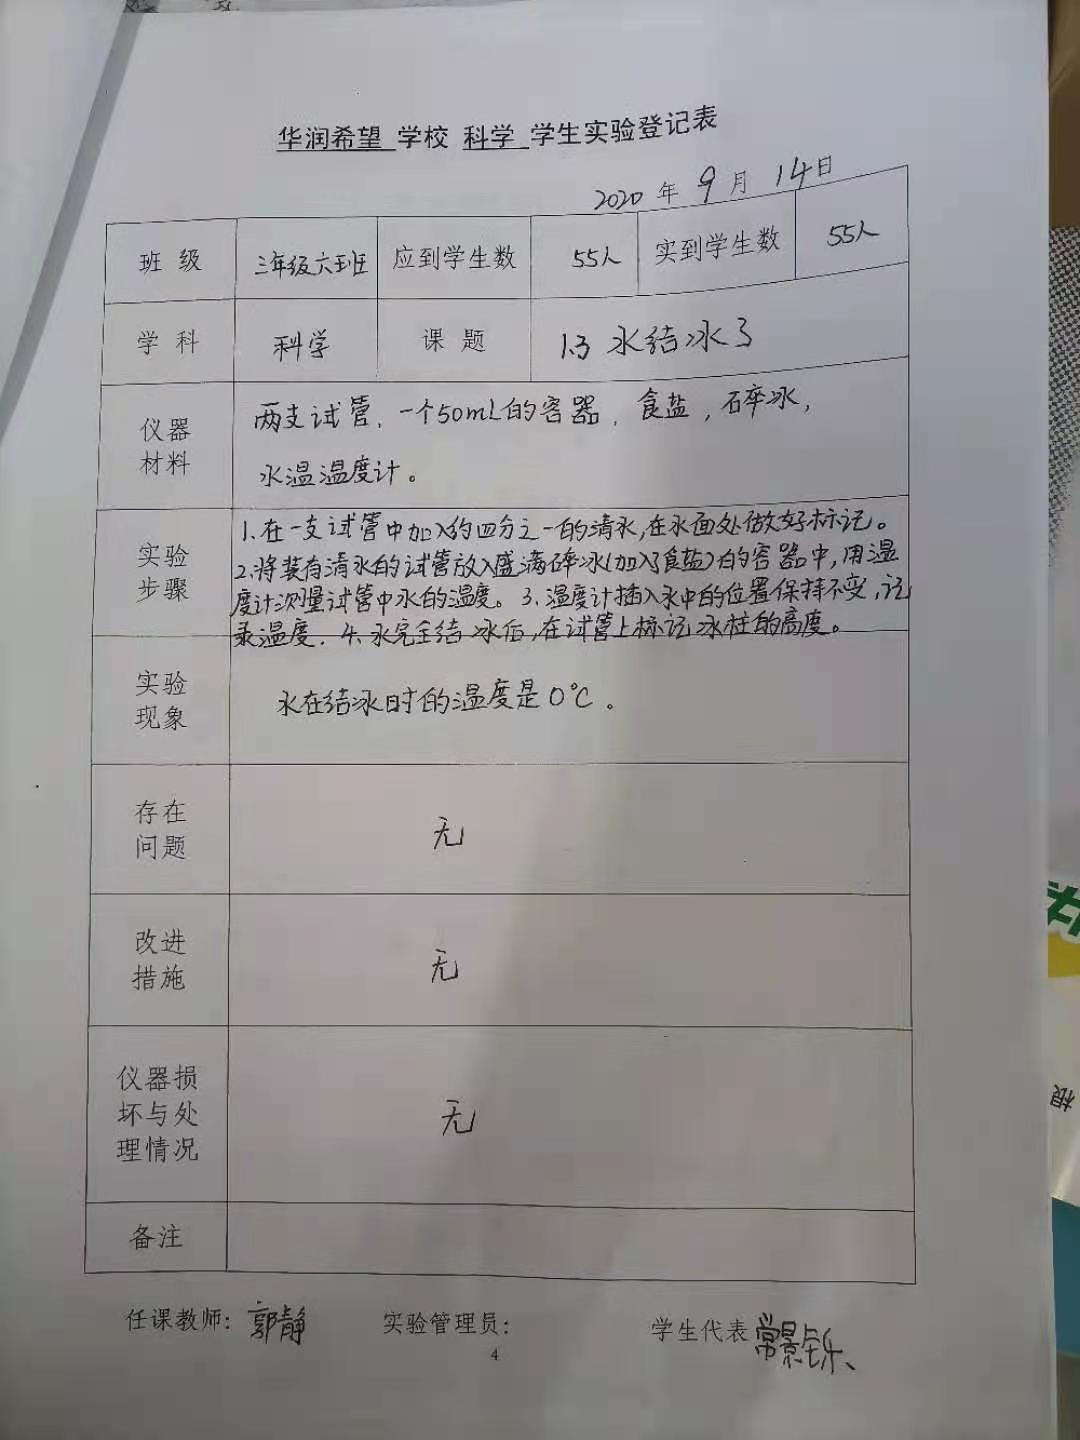 华润希望 学校 科学 学生实验登记表
2020 年 9 月 14日
班 级 三年级六班 应到学生数 55人 实到学生数 55人
学 科 科学 课 题 1.3 水结冰了
仪器
材料
两支试管、一个50mL的容器、食盐,碎冰,
水温温度计。
实验
步骤
1.在一支试管中加入约四分之一的清水,在水面处做好标记。
2.将装有清水的试管放入盛满碎冰(加入了食盐)的容器中,用温
度计测量试管中水的温度。3.温度计插入水中的位置保持不变,记
录温度.4.水完全结冰后,在试管上标记冰柱的高度。
实验
现象
水在结冰时的温度是0℃。
存在
问题
无
改进
措施
无
仪器损
坏与处
理情况
无
备注
任课教师:郭静 实验管理员: 学生代表 常景铄
4
根